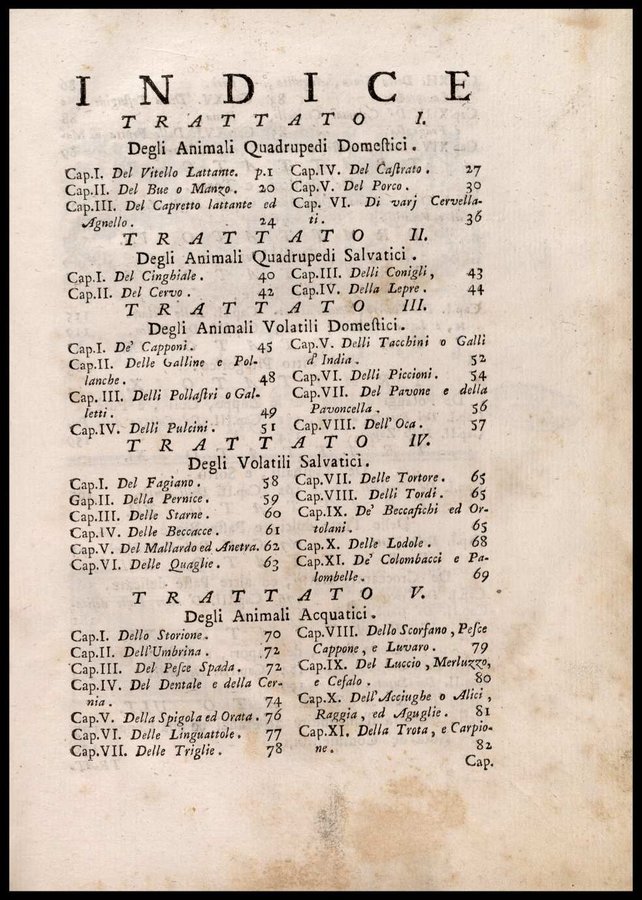 INDICE
TRATTATO I.
Degli Animali Quadrupedi Domeſtici.
Cap.I. Del Vitello Lattante. p.1
Cap.II. Del Bue o Manzo. 20
Cap.III. Del Capretto lattante ed
Agnello. 24
Cap.IV. Del Caſtrato. 27
Cap.V. Del Porco. 30
Cap. VI. Di varj Cervella-
ti. 36
TRATTATO II.
Degli Animali Quadrupedi Salvatici.
Cap.I. Del Cinghiale. 40
Cap.II. Del Cervo. 42
Cap.III. Delli Conigli, 43
Cap.IV. Della Lepre. 44
TRATTATO III.
Degli Animali Volatili Domeſtici.
Cap.I. De' Capponi. 45
Cap.II. Delle Galline e Pol-
lanche. 48
Cap. III. Delli Pollaſtri o Gal-
letti. 49
Cap.IV. Delli Pulcini. 51
Cap.V. Delli Tacchini o Galli
d'India. 52
Cap.VI. Delli Piccioni. 54
Cap.VII. Del Pavone e della
Pavoncella. 56
Cap.VIII. Dell'Oca. 57
TRATTATO IV.
Degli Volatili Salvatici.
Cap.I. Del Fagiano. 58
Gap.II. Della Pernice. 59
Cap.III. Delle Starne. 60
Cap.IV. Delle Beccacce. 61
Cap.V. Del Mallardo ed Anetra. 62
Cap.VI. Delle Quaglie. 63
Cap.VII. Delle Tortore. 65
Cap.VIII. Delli Tordi. 65
Cap.IX. De' Beccafichi ed Or-
tolani. 65
Cap.X. Delle Lodole. 68
Cap.XI. De' Colombacci e Pa-
lombelle. 69
TRATTATO V.
Degli Animali Acquatici.
Cap.I. Dello Storione. 70
Cap.II. Dell'Umbrina. 72
Cap.III. Del Peſce Spada. 72
Cap.IV. Del Dentale e della Cer-
nia. 74
Cap.V. Della Spigola ed Orata. 76
Cap.VI. Delle Linguattole. 77
Cap.VII. Delle Triglie. 78
Cap.VIII. Dello Scorfano, Peſce
Cappone, e Luvaro. 79
Cap.IX. Del Luccio, Merluzzo,
e Cefalo. 80
Cap.X. Dell'Acciughe o Alici,
Raggia, ed Aguglie. 81
Cap.XI. Della Trota, e Carpio-
ne. 82
Cap.